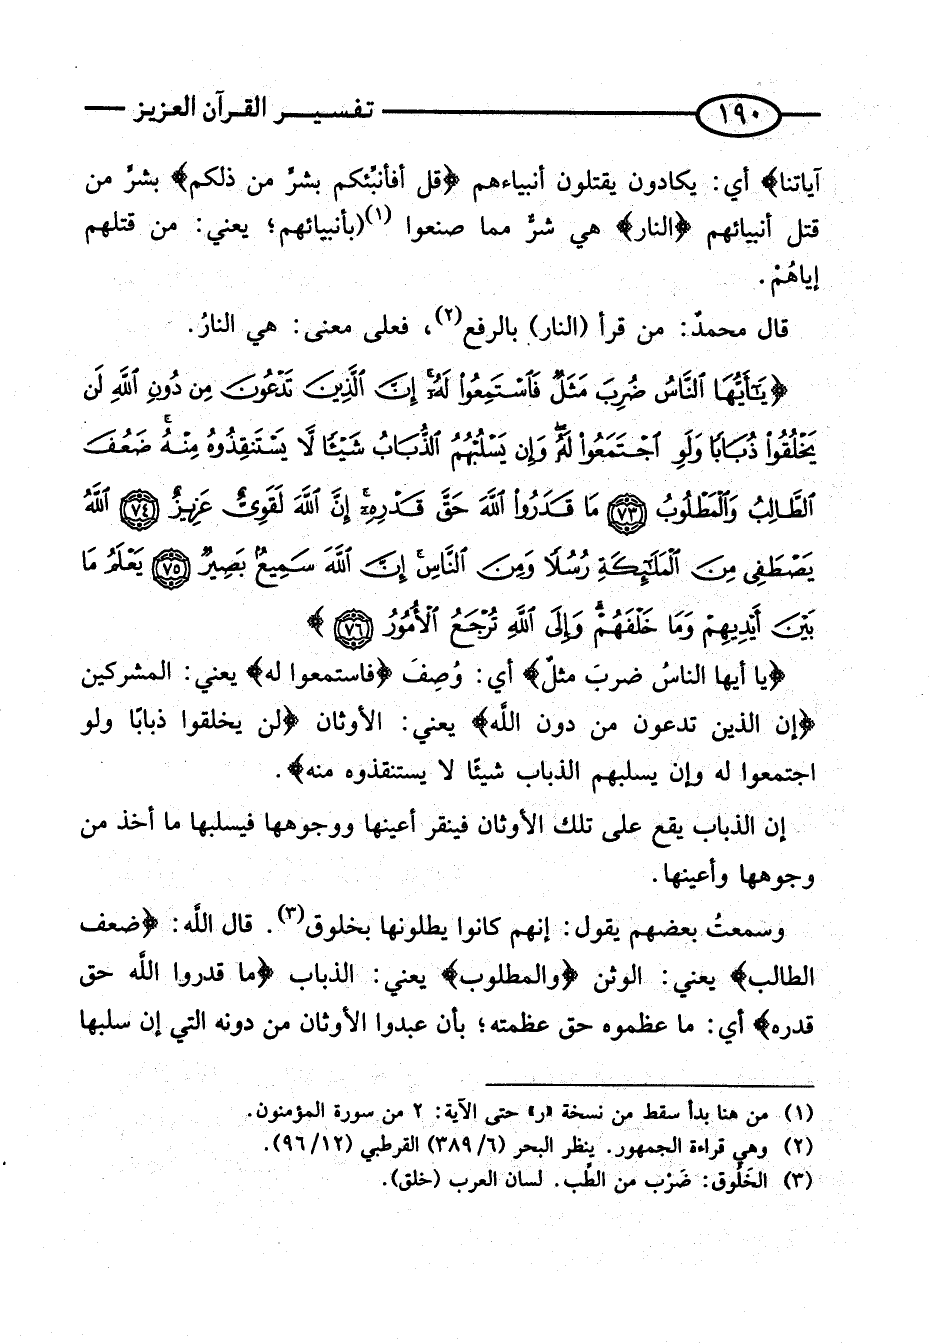 ١٩٠ تفسير القرآن العزيز
آياتنا﴾ أي: يكادون يقتلون أنبياءهم ﴿قل أفأنبِّئكم بشرٍّ من ذلكم﴾ بشرٍّ من
قتل أنبيائهم ﴿النار﴾ هي شرٌّ مما صنعوا (١)(بأنبيائهم؛ يعني: من قتلهم
إياهُمْ.
قال محمدٌ: من قرأ (النار) بالرفع(٢)، فعلى معنى: هي النارُ.
﴿يَٰٓأَيُّهَا ٱلنَّاسُ ضُرِبَ مَثَلٌ فَٱسْتَمِعُوا۟ لَهُۥٓ ۚ إِنَّ ٱلَّذِينَ تَدْعُونَ مِن دُونِ ٱللَّهِ لَن
يَخْلُقُوا۟ ذُبَابًا وَلَوِ ٱجْتَمَعُوا۟ لَهُۥ ۖ وَإِن يَسْلُبْهُمُ ٱلذُّبَابُ شَيْـًٔا لَّا يَسْتَنقِذُوهُ مِنْهُ ۚ ضَعُفَ
ٱلطَّالِبُ وَٱلْمَطْلُوبُ ﴿٧٣﴾ مَا قَدَرُوا۟ ٱللَّهَ حَقَّ قَدْرِهِۦٓ ۗ إِنَّ ٱللَّهَ لَقَوِىٌّ عَزِيزٌ ﴿٧٤﴾ ٱللَّهُ
يَصْطَفِى مِنَ ٱلْمَلَٰٓئِكَةِ رُسُلًا وَمِنَ ٱلنَّاسِ ۚ إِنَّ ٱللَّهَ سَمِيعٌۢ بَصِيرٌ ﴿٧٥﴾ يَعْلَمُ مَا
بَيْنَ أَيْدِيهِمْ وَمَا خَلْفَهُمْ ۗ وَإِلَى ٱللَّهِ تُرْجَعُ ٱلْأُمُورُ ﴿٧٦﴾ ﴾
﴿يا أيها الناسُ ضربَ مثلٌ﴾ أي: وُصِفَ ﴿فاستمعوا له﴾ يعني: المشركين
﴿إن الذين تدعون من دون اللَّه﴾ يعني: الأوثان ﴿لن يخلقوا ذبابًا ولو
اجتمعوا له وإن يسلبهم الذباب شيئًا لا يستنقذوه منه﴾.
إن الذباب يقع على تلك الأوثان فينقر أعينها ووجوهها فيسلبها ما أخذ من
وجوهها وأعينها.
وسمعتُ بعضهم يقول: إنهم كانوا يطلونها بخلوق(٣). قال اللَّه: ﴿ضعف
الطالب﴾ يعني: الوثن ﴿والمطلوب﴾ يعني: الذباب ﴿ما قدروا اللَّه حق
قدره﴾ أي: ما عظموه حق عظمته؛ بأن عبدوا الأوثان من دونه التي إن سلبها
(١) من هنا بدأ سقط من نسخة «ر» حتى الآية: ٢ من سورة المؤمنون.
(٢) وهي قراءة الجمهور. ينظر البحر (٦/ ٣٨٩) القرطبي (١٢/ ٩٦).
(٣) الخَلُوق: ضَرْب من الطِّب. لسان العرب (خلق).